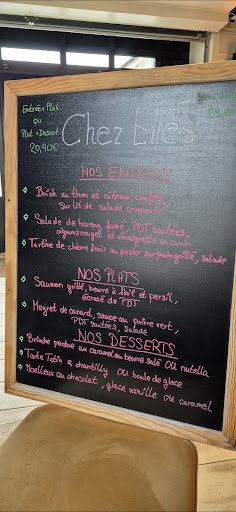 Entrée + Plat
ou
Plat + Dessert
20,40€
Chez Elles
NOS ENTRÉES
Brick au thon et citrons confits,
sur lit de salade croquante
Salade de hareng fumé, PDT sautées,
oignons rouges et vinaigrette au cumin
Tartine de chèvre frais au pesto sur pain grillé, salade
NOS PLATS
Saumon grillé, beurre à l'ail et persil,
écrasé de PDT
Magret de canard, sauce au poivre vert,
PDT sautées, salade
NOS DESSERTS
Brioche perdue au caramel au beurre salé OU nutella
Tarte Tatin & chantilly OU boule de glace
Moelleux au chocolat, glace vanille OU caramel